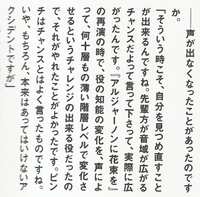 ――声が出なくなったことがあったのです
か。
「そういう時こそ、自分を見つめ直すこと
が出来るんですね。先輩方が音域が広がる
チャンスだよって言って下さって、実際に広
がったんです。『アルジャーノンに花束を』
の再演の時で、役の知能の変化を、声によ
って、何十層もの薄い階層レベルで変化さ
せるというチャレンジの出来る役だったの
で、それがやれたことがよかったです。ピン
チはチャンスとはよく言ったものですね。
いや、もちろん、本来はあってはいけないア
クシデントですが」